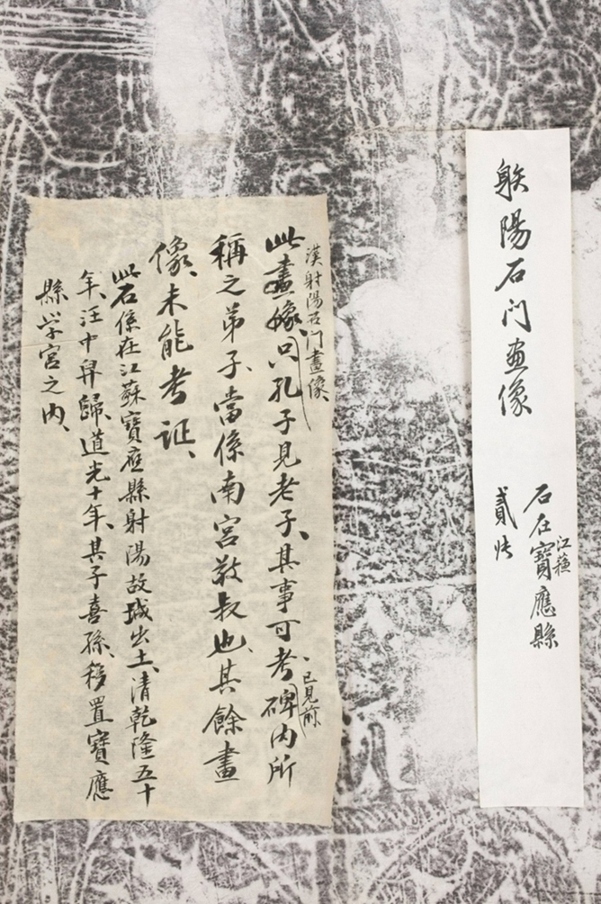 躲陽石门画像
石在寶應縣
江蘇
貳张
漢射陽石门畫像
此畫像、只孔子見老子、其事可考、碑內所
已見前
稱之弟子、當係南宮敬叔也、其餘畫
像、未能考证、
此石係在江蘇寶應縣射陽故城出土、清乾隆五十
年、汪中舁歸、道光十年、其子喜孫、移置寶應
縣学宮之內、